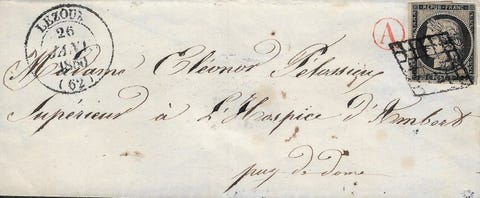 LEZOUX
26
JANV.
1850
(62)
A
REPUB. FRANC.
Madame Eleonor Pélassier
Supérieur à L'Hospice d'Ambert
puy-de-dome